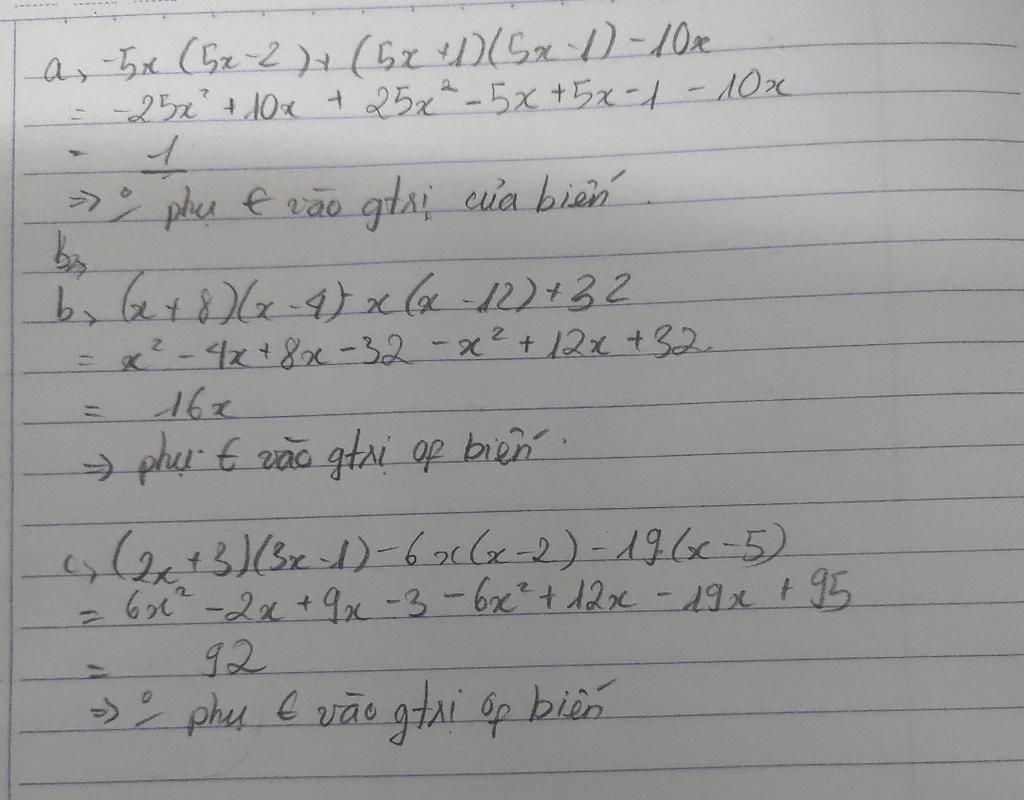 a, -5x (5x-2) + (5x+1)(5x-1) - 10x
= -25x² + 10x + 25x² - 5x + 5x - 1 - 10x
- 1
=> phụ € vào gtrị của biến.
b,
b, (x+8)(x-4) - x(x-12) + 32
= x² - 4x + 8x - 32 - x² + 12x + 32.
= 16x
=> phụ € vào gtrị of biến.
c, (2x+3)(3x-1) - 6x(x-2) - 19.(x-5)
= 6x² - 2x + 9x - 3 - 6x² + 12x - 19x + 95
= 92
=> phụ € vào gtrị of biến